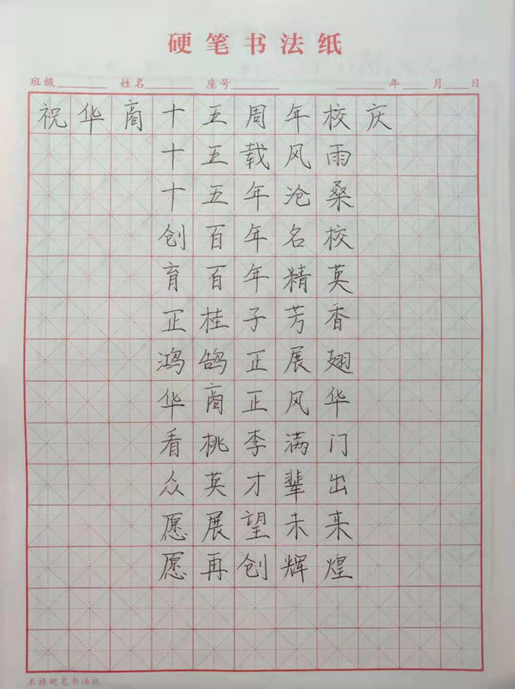 硬笔书法纸
班级 姓名 座号 年 月 日
祝华商十五周年校庆
十五载风雨
十五年沧桑
创百年名校
育百年精英
正桂子芳香
鸿鹄正展翅
华商正风华
看桃李满门
众英才辈出
愿展望未来
愿再创辉煌
米格硬笔书法纸